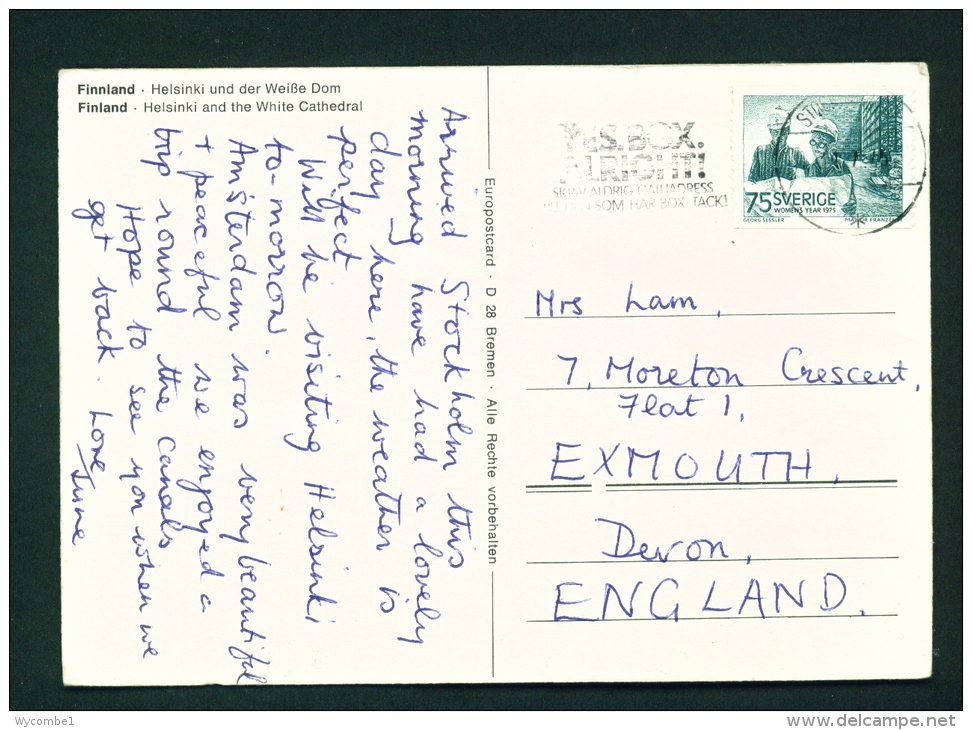 Finnland · Helsinki und der Weiße Dom
Finland · Helsinki and the White Cathedral
Arrived Stockholm this
morning have had a lovely
day here, the weather is
perfect
Will be visiting Helsinki
to-morrow.
Amsterdam was very beautiful
+ peaceful we enjoyed a
trip round the canals
Hope to see you when we
get back. Love
June
Europostcard · D 28 Bremen · Alle Rechte vorbehalten
YES. BOX.
ALRIGHT!
SKRIV ALDRIG GATUADRESS
SOM HAR BOX. TACK!
75 SVERIGE
WOMENS YEAR 1975
GEORG SESSLER MAJVOR FRANZÉN
Mrs Lam,
7, Moreton Crescent,
Flat 1,
EXMOUTH,
Devon,
ENGLAND.
Wycombe1
www.delcampe.net